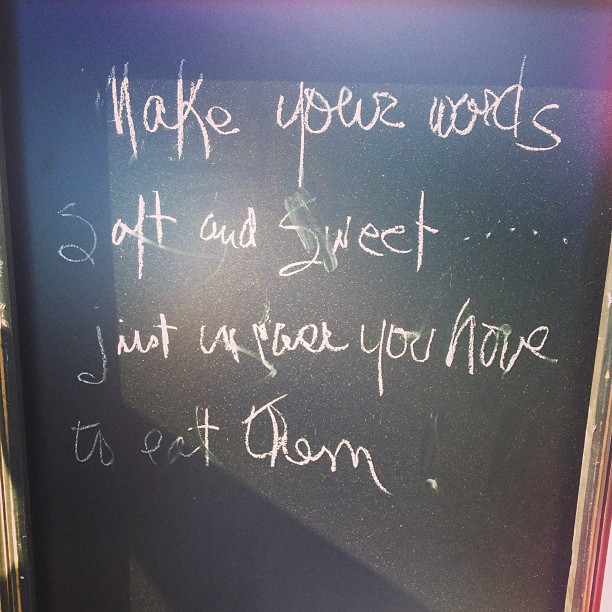 Make your words
Soft and Sweet ......
just in case you have
to eat them.